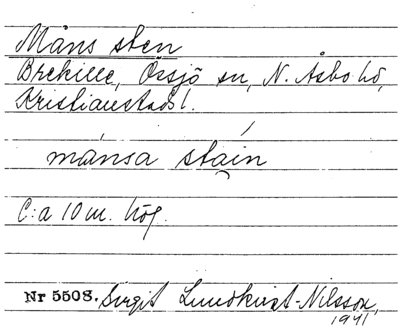 Måns sten
Brekille, Örsjö sn, N. Åsbo hd,
Kristianstads l.
månsa stain
C:a 10 m. hög.
Nr 5508. Birgit Lundkvist-Nilsson,
1941